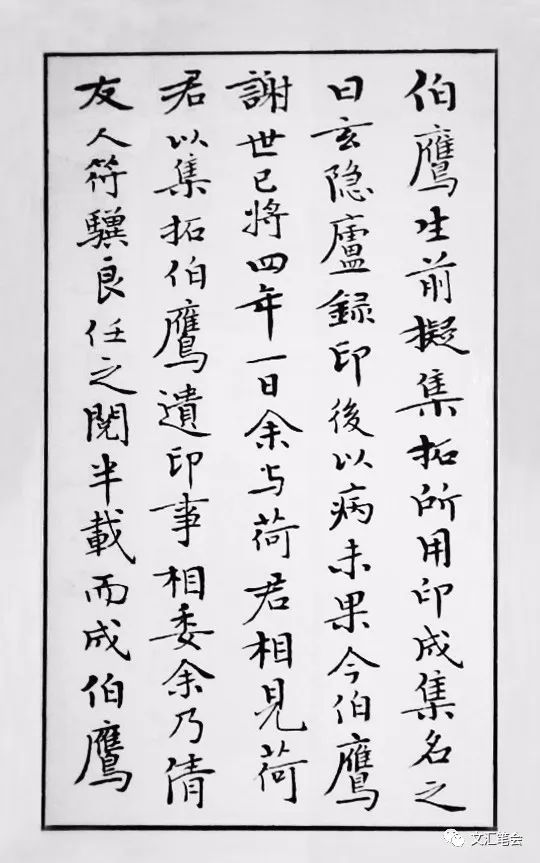 伯鷹生前擬集拓所用印成集名之
曰玄隐廬録印後以病未果今伯鷹
謝世已將四年一日余与荷君相見荷
君以集拓伯鷹遺印事相委余乃倩
友人符驥良任之閱半載而成伯鷹
文汇笔会